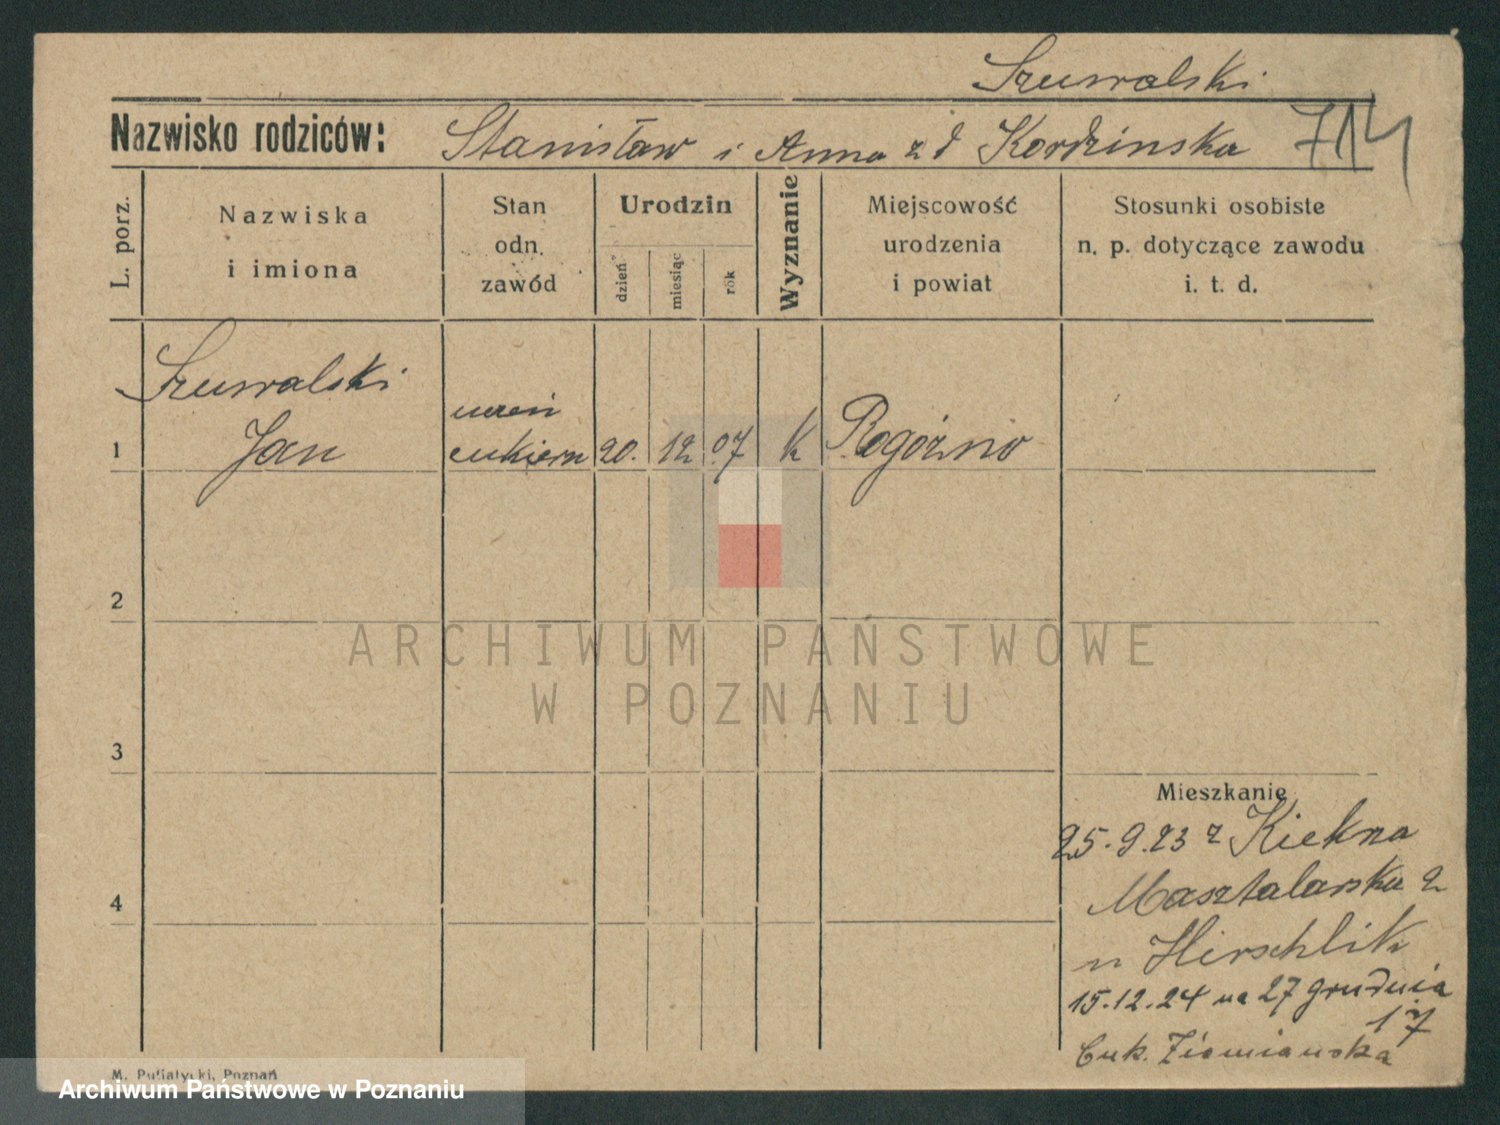 Szuwalski
Nazwisko rodziców: Stanisław i Anna z d Kordzinska 714
L. porz.
Nazwiska
i imiona
Stan
odn.
zawód
Urodzin
dzień
miesiąc
rok
Wyznanie
Miejscowość
urodzenia
i powiat
Stosunki osobiste
n. p. dotyczące zawodu
i. t. d.
Szuwalski
Jan
uczeń
cukiern
1 20. 12 07 k Rogóźno
2
3
4
ARCHIWUM PAŃSTWOWE
W POZNANIU
Mieszkanie
25.9.23 z Kiekrza
Masztalarska 2
u Hirschlik
15.12.24 na 27 grudnia
17
Cuk. Ziemianska
M. Putiatycki, Poznań
Archiwum Państwowe w Poznaniu